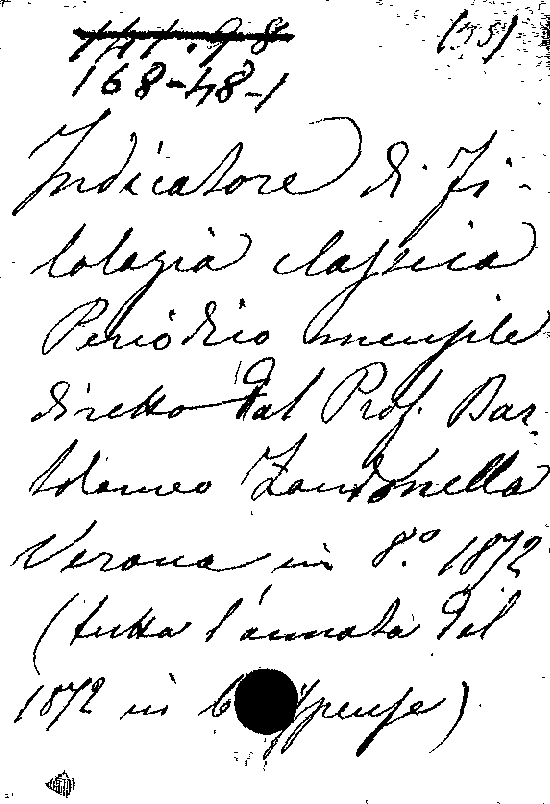 141.98 (35)
168-48-1
Indicatore di Fi-
lologia classica
Periodico mensile
diretto dal Prof. Bar-
tolomeo Zandonella
Verona in 8.° 1872
(tutta l'annata del
1872 in 6 Dispense)